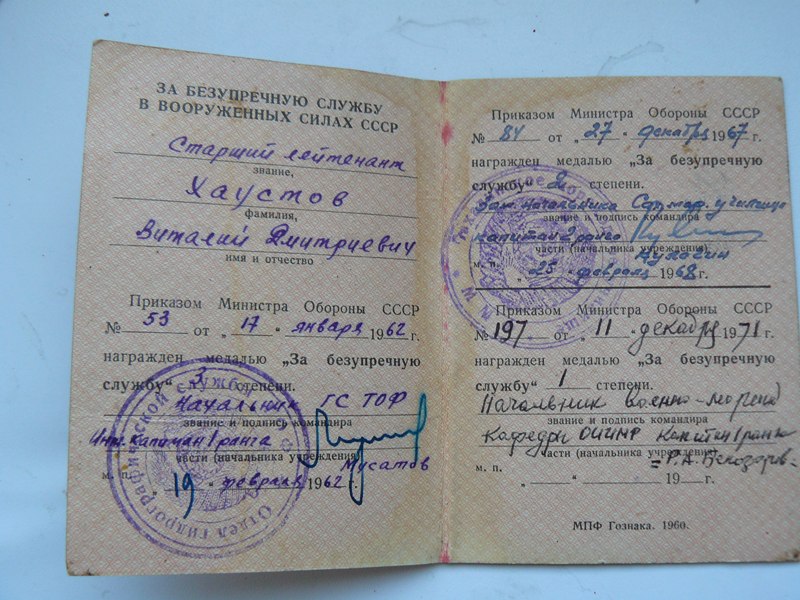 ЗА БЕЗУПРЕЧНУЮ СЛУЖБУ
В ВООРУЖЕННЫХ СИЛАХ СССР
Старший лейтенант
звание,
Хаустов
фамилия,
Виталий Дмитриевич
имя и отчество
Приказом Министра Обороны СССР
№ 53 от „17" января 1962 г.
награжден медалью „За безупречную
службу" 3 степени.
Начальник ГС ТОФ
звание и подпись командира
Инж. капитан 1 ранга
части (начальника учреждения)
Мусатов
м. п. „19" февраля 1962 г.
Отдел гидрографической службы
Приказом Министра Обороны СССР
№ 84 от „27" декабря 1967 г.
награжден медалью „За безупречную
службу" 2 степени.
Зам. начальника училища
звание и подпись командира
капитан 2 ранга
части (начальника учреждения)
м. п. „25" февраля 1968 г.
Приказом Министра Обороны СССР
№ 197 от „11" декабря 1971 г.
награжден медалью „За безупречную
службу" 1 степени.
Начальник Военно-морской
звание и подпись командира
Кафедры ОИИМФ Капитан 1 ранга
части (начальника учреждения)
м. п. „ " 19 г.
МПФ Гознака. 1960.